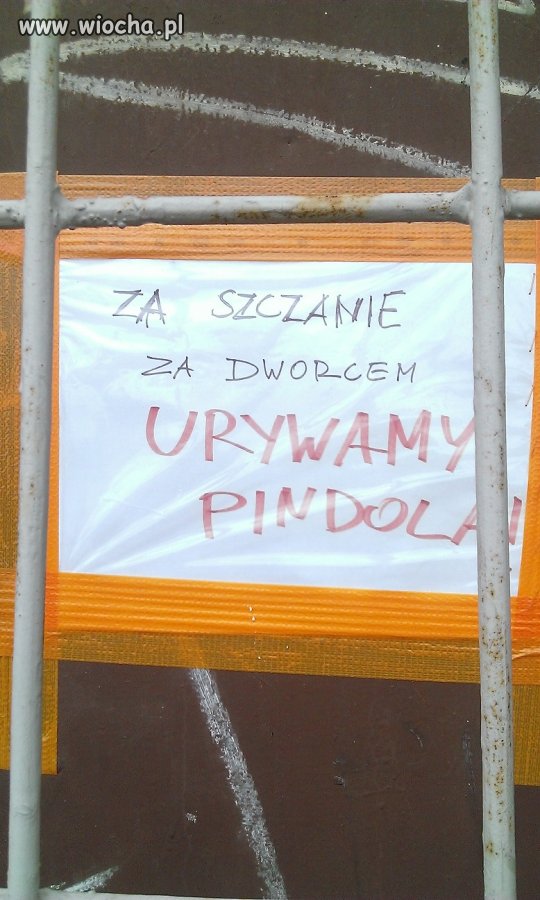 www.wiocha.pl
ZA SZCZANIE
ZA DWORCEM
URYWAMY
PINDOLA!